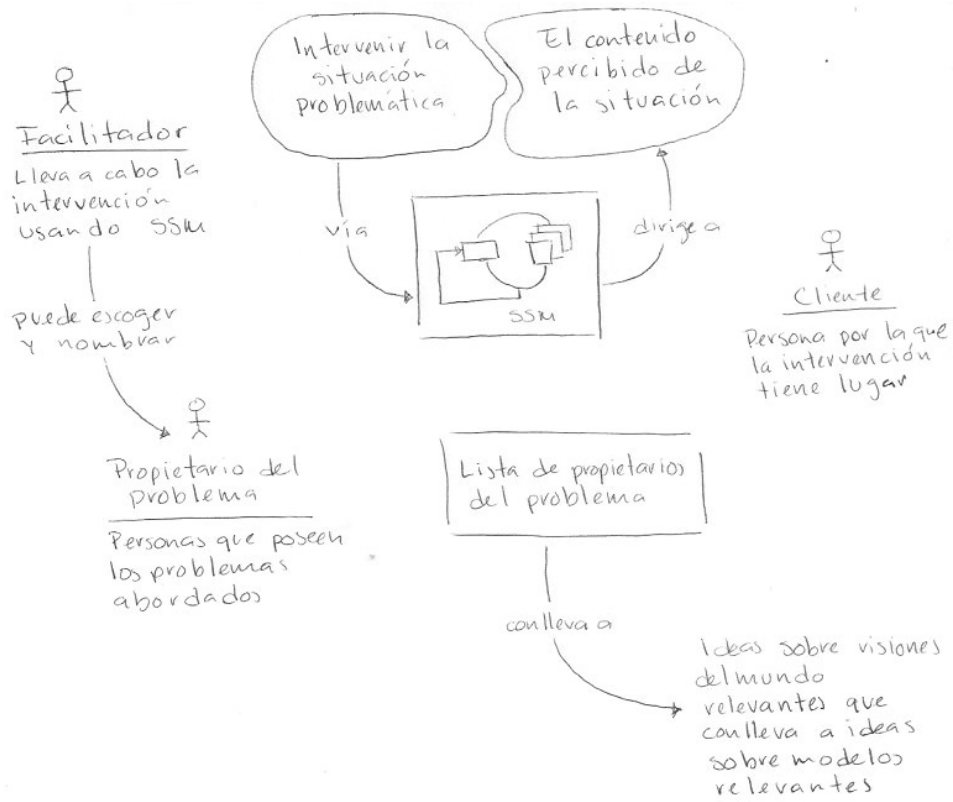 Intervenir la
situación
problemática
El contenido
percibido de
la situación
Facilitador
Lleva a cabo la
intervención
usando SSM
vía
dirige a
SSM
puede escoger
y nombrar
Cliente
Persona por la que
la intervención
tiene lugar
Propietario del
problema
Personas que poseen
los problemas
abordados
Lista de propietarios
del problema
conlleva a
Ideas sobre visiones
del mundo
relevantes que
conlleva a ideas
sobre modelos
relevantes